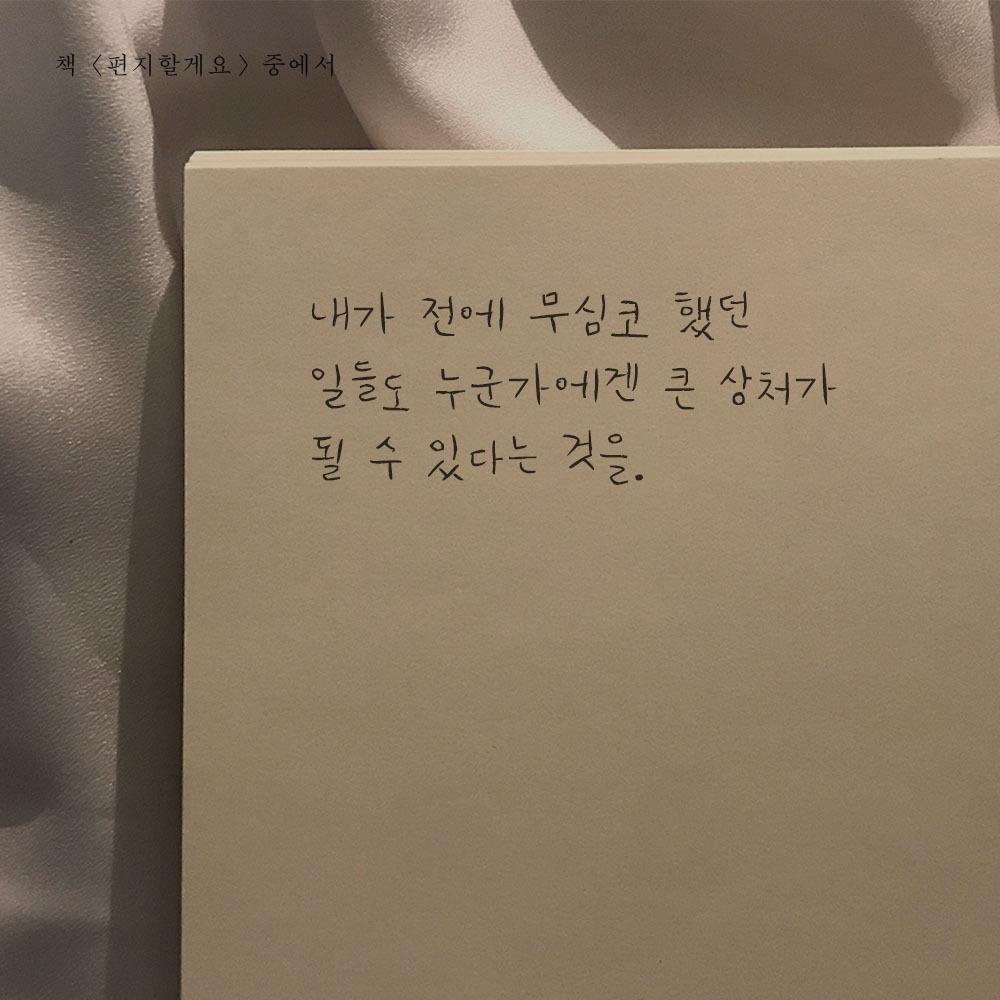 책 〈편지할게요〉 중에서
내가 전에 무심코 했던
일들도 누군가에겐 큰 상처가
될 수 있다는 것을.